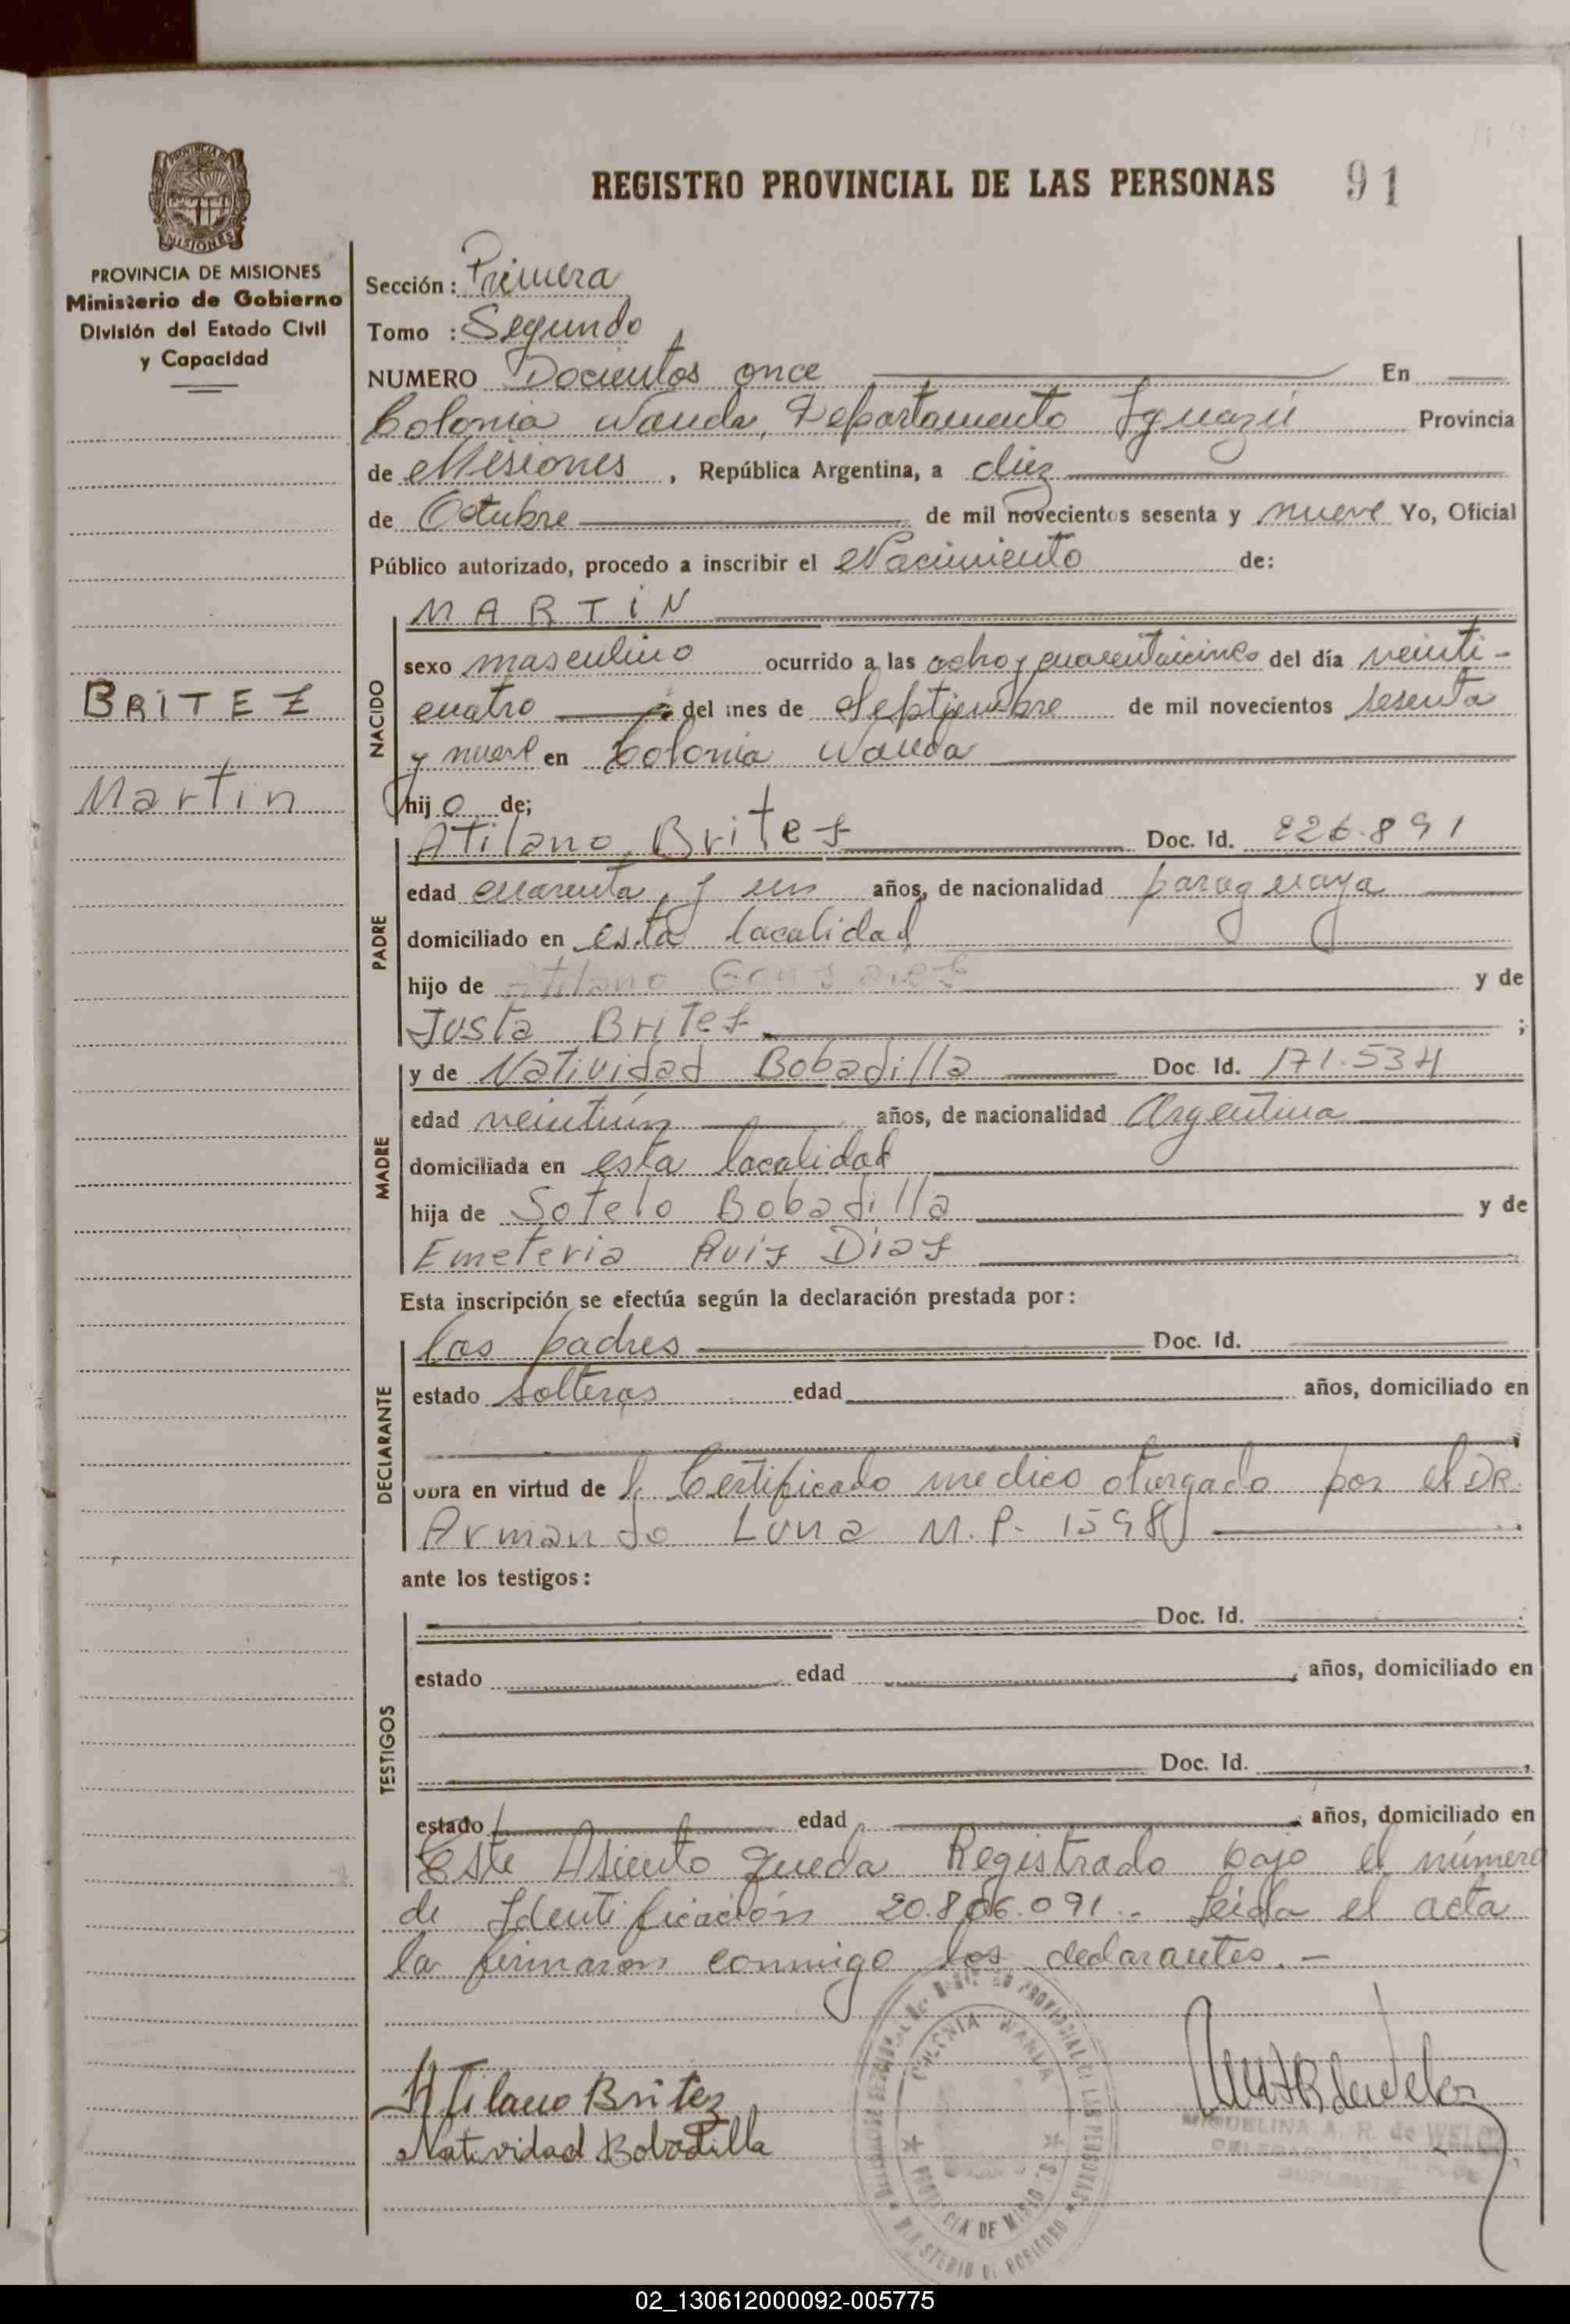 REGISTRO PROVINCIAL DE LAS PERSONAS 91
PROVINCIA DE MISIONES
MISIONES
PROVINCIA DE MISIONES
Ministerio de Gobierno
División del Estado Civil
y Capacidad
BRITEZ
Martin
Sección: Primera
Tomo : Segundo
NUMERO Docientos once En
Colonia Wanda, Departamento Iguazú Provincia
de Misiones, República Argentina, a diez
de Octubre de mil novecientos sesenta y nueve Yo, Oficial
Público autorizado, procedo a inscribir el Nacimiento de:
NACIDO
MARTIN
sexo masculino ocurrido a las ocho y cuarentaicinco del día veinti-
cuatro del mes de Septiembre de mil novecientos sesenta
y nueve en Colonia Wanda
hijo de;
PADRE
Atilano Britez Doc. Id. 226.891
edad cuarenta y un años, de nacionalidad paraguaya
domiciliado en esta localidad
hijo de Atilano Gonzalez y de
Justa Britez ;
MADRE
y de Natividad Bobadilla Doc Id. 171.534
edad veintiún años, de nacionalidad Argentina
domiciliada en esta localidad
hija de Sotelo Bobadilla y de
Emeteria Ruiz Diaz
Esta inscripción se efectúa según la declaración prestada por:
DECLARANTE
los padres Doc. Id.
estado solteros edad años, domiciliado en
obra en virtud de l Certificado medico oturgado por el DR.
Armando Luna M.P. 1598
ante los testigos:
TESTIGOS
Doc. Id.
estado edad años, domiciliado en
Doc. Id.
estado edad años, domiciliado en
Este Asiento queda Registrado bajo el número
de Identificación 20.806.091.- Leida el acta
la firmaron conmigo los declarantes.-
Atilano Britez
Natividad Bobadilla
COLONIA WANDA
PROVINCIA DE MISIONES
MINISTERIO DE GOBIERNO
MIGUELINA A. R. de
SUPLENTE
02_130612000092-005775